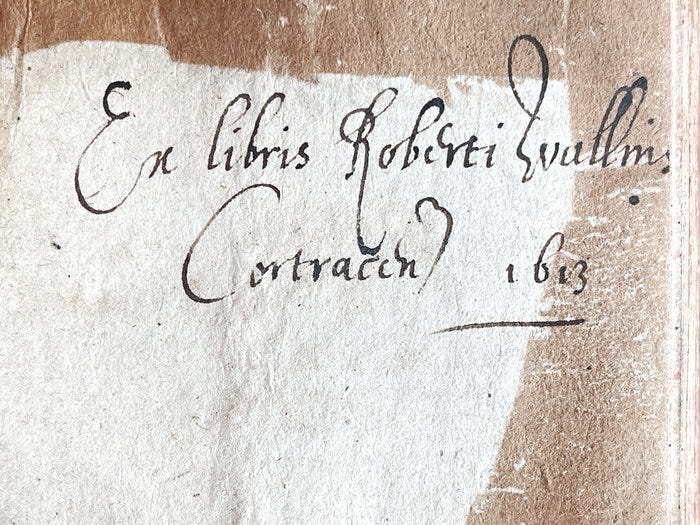 Ex libris Roberti Wallin
Cortracen 1613